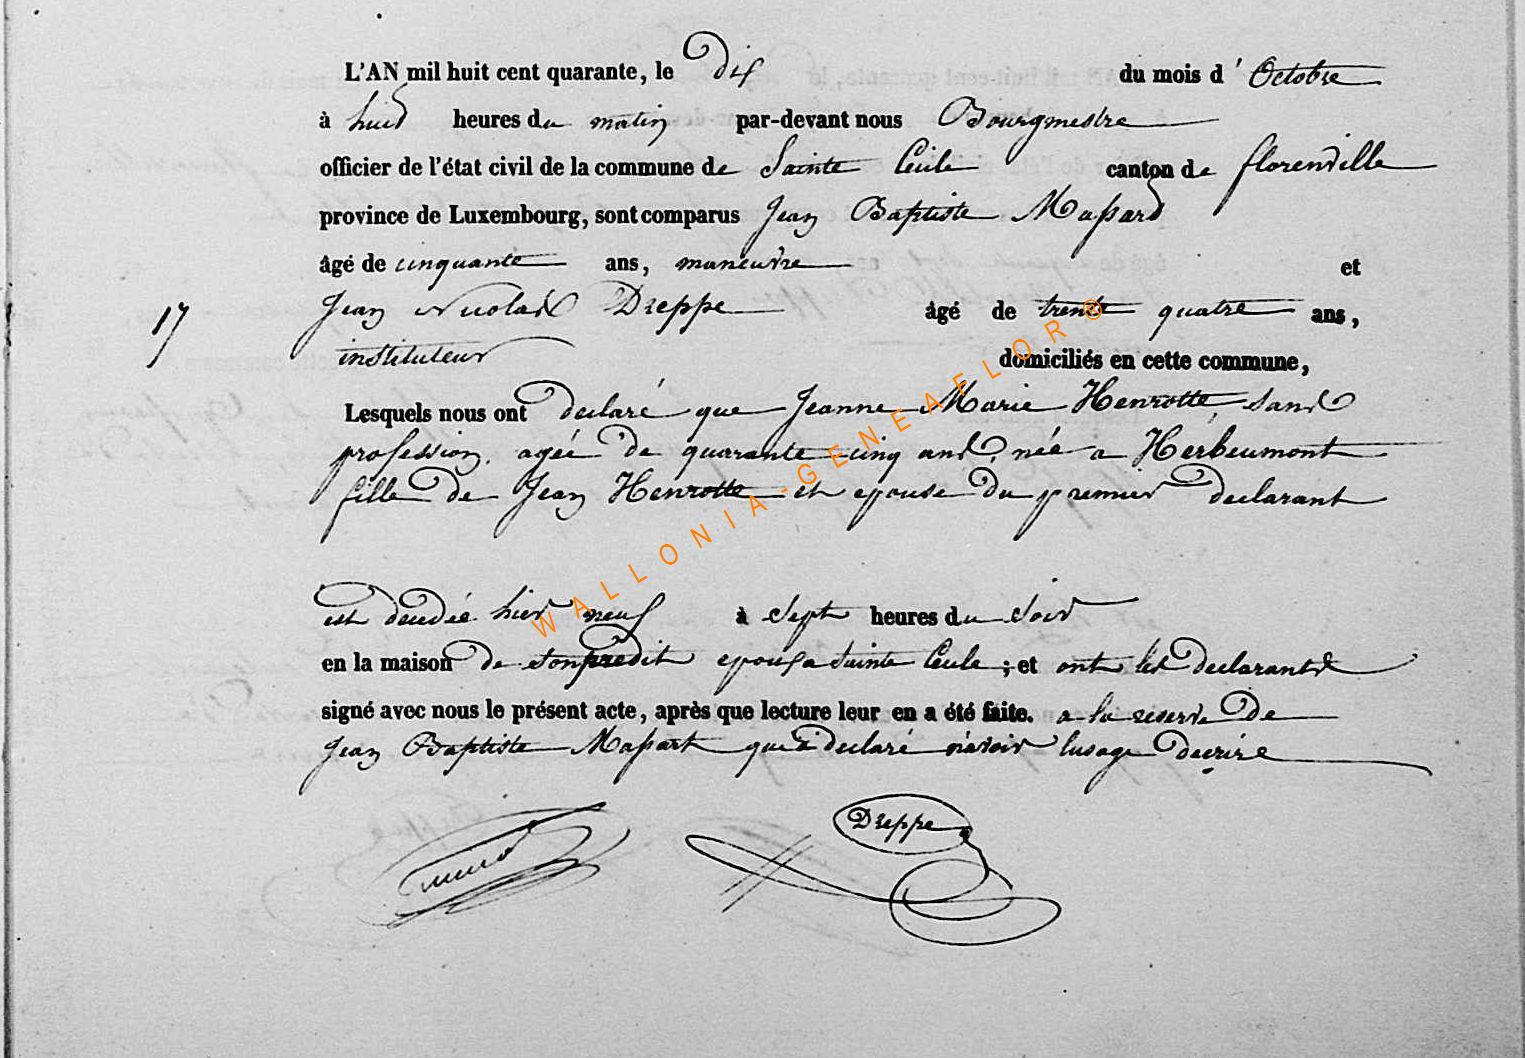 L'AN mil huit cent quarante, le Dix du mois d' Octobre
à huit heures du matin par-devant nous Bourgmestre
officier de l'état civil de la commune de Sainte Cecile canton de florenville
province de Luxembourg, sont comparus Jean Baptiste Massard
âgé de cinquante ans, maneuvre et
17 Jean Nicolas Dreppe âgé de trente quatre ans,
instituteur domiciliés en cette commune,
Lesquels nous ont declaré que Jeanne Marie Henrotte, sans
profession, agée de quarante cinq ans, née a Herbeumont
fille de Jean Henrotte et epouse du premier declarant
est decedée hier neuf à Sept heures du Soir
en la maison de son predit epoux a Sainte Cecile ; et ont les declarants
signé avec nous le présent acte, après que lecture leur en a été faite. a la reserve de
Jean Baptiste Massart qui a declaré n'avoir lusage decrire
Dreppe
WALLONIA-GENEAFLOR®